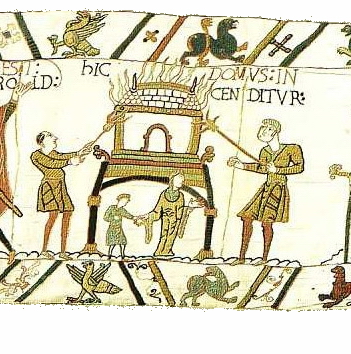 ESTI:
ROLD:
hIC DOMVS:IN
CENDITVR: